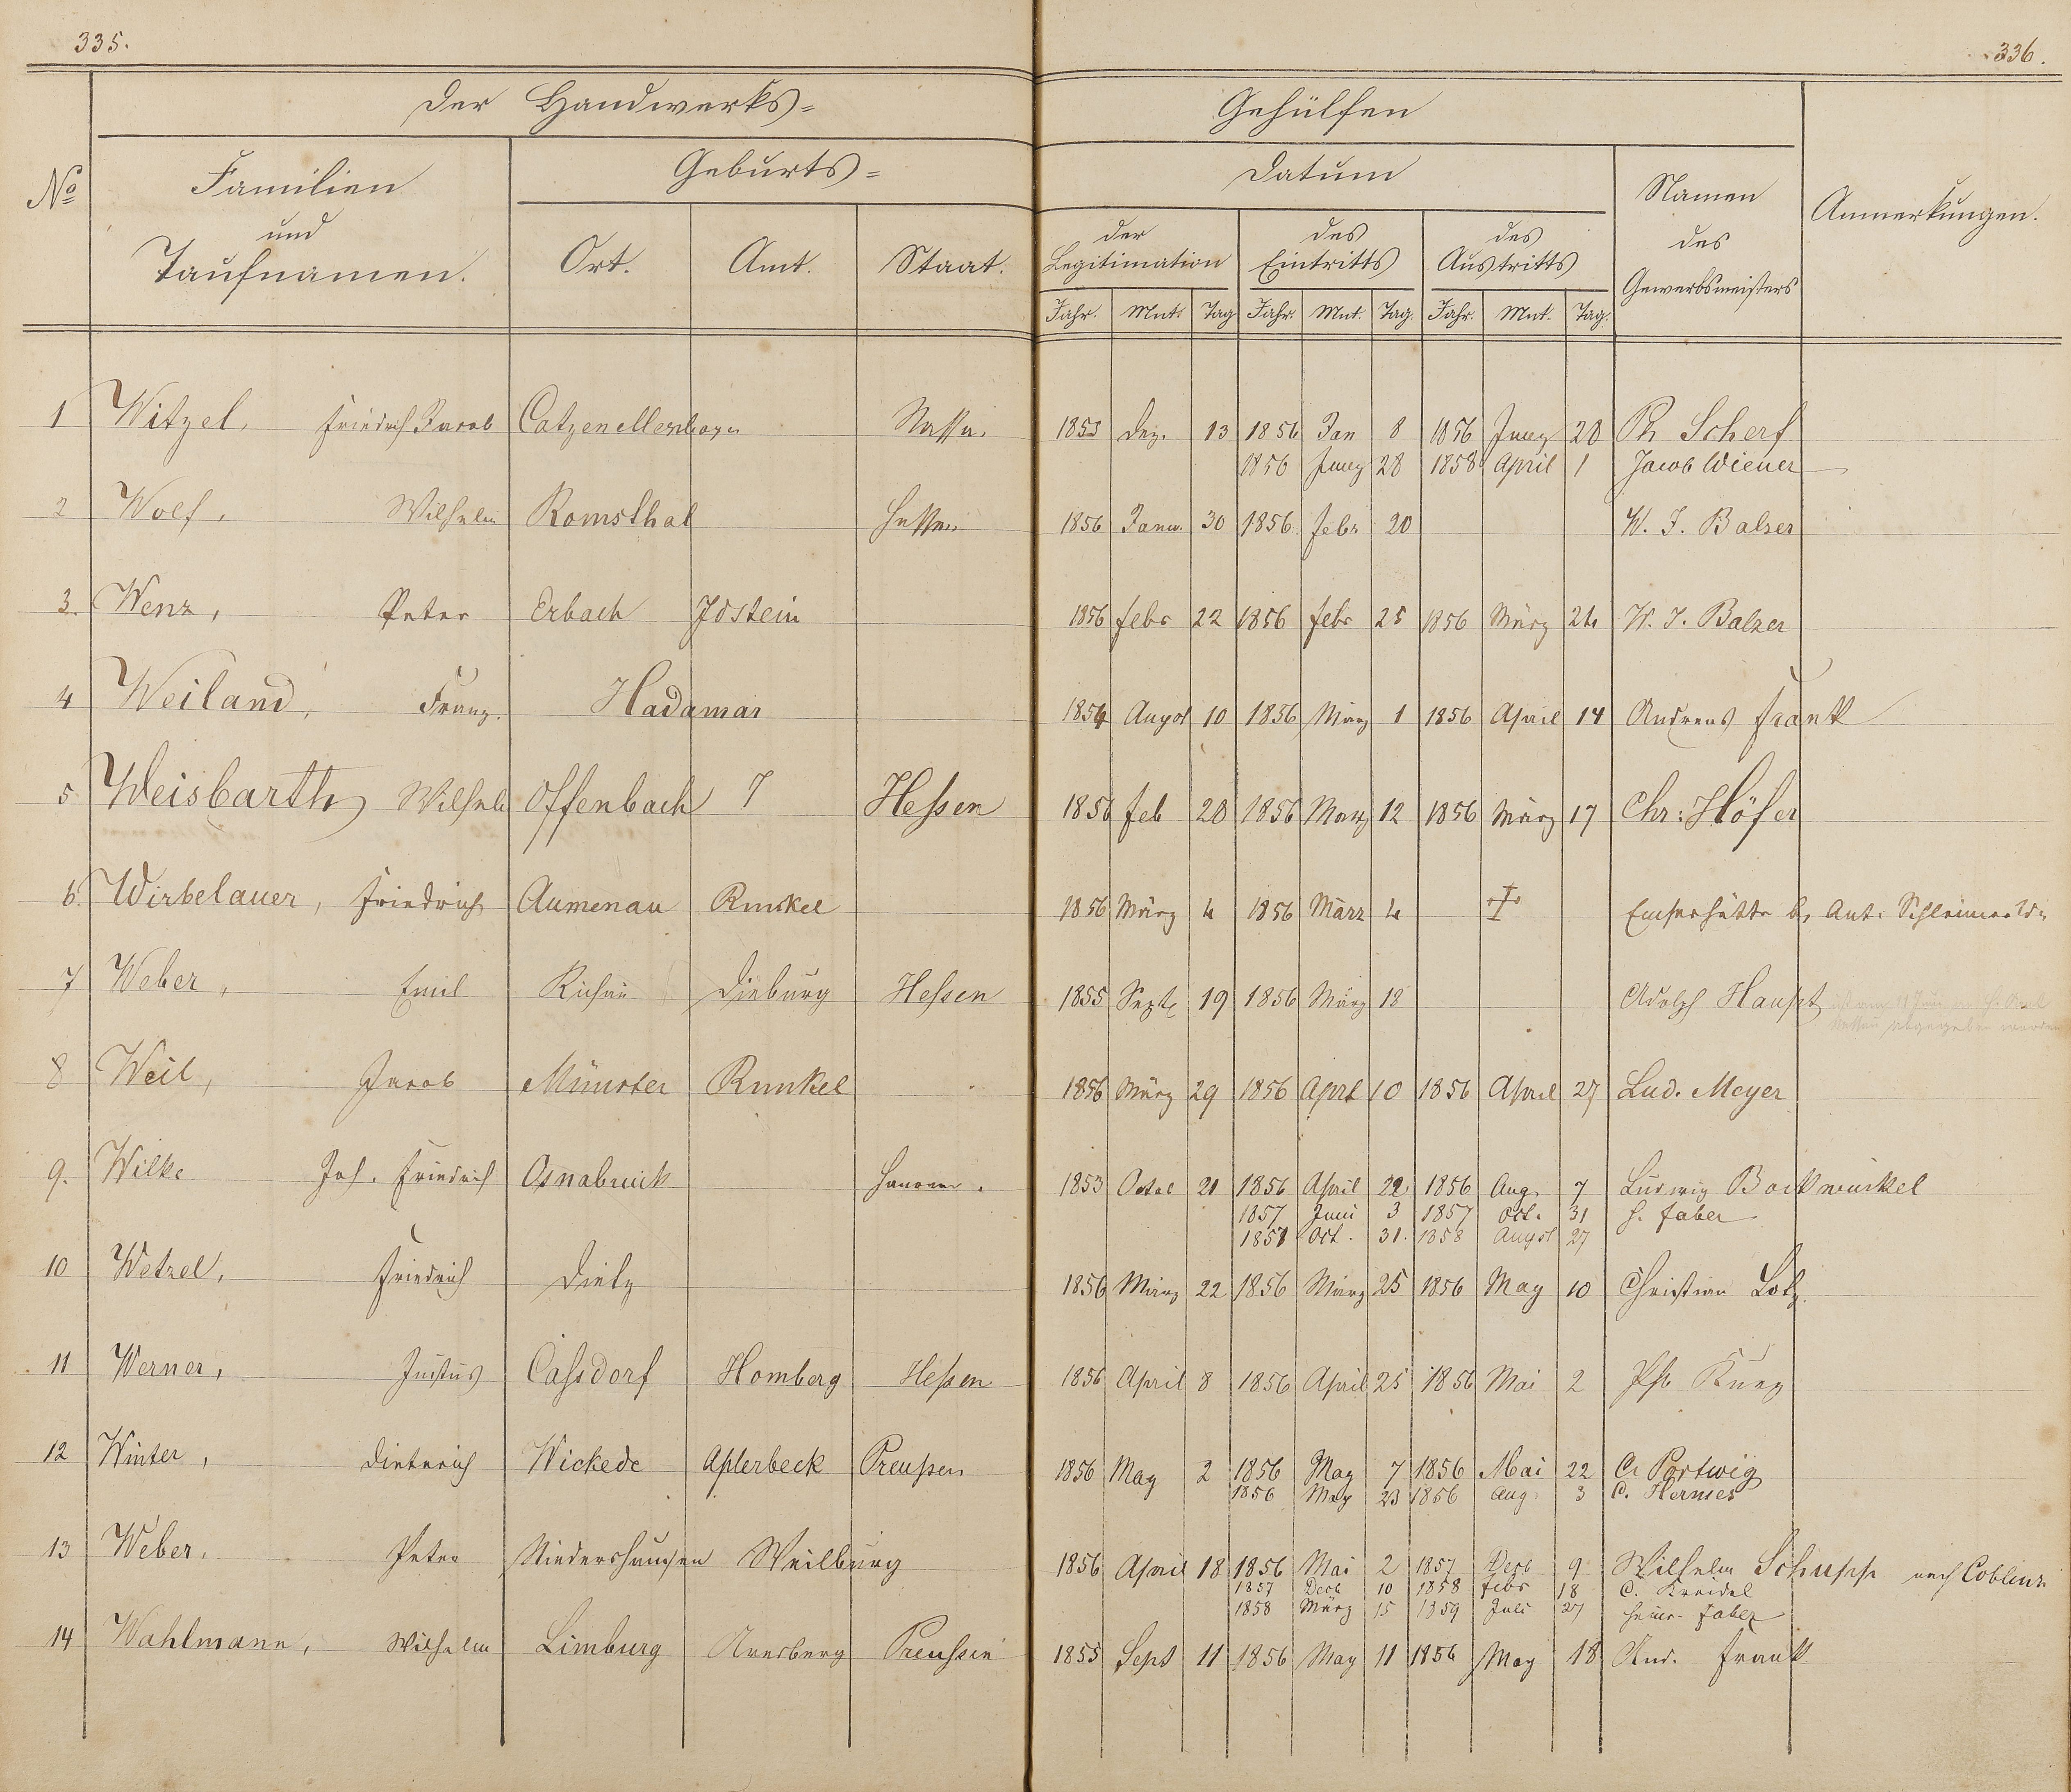 335.
336.
Der Handwerks=
Gehülfen
No
Familien
und
Taufnamen.
Geburts=
Ort.
Amt.
Staat.
Datum
der
Legitimation
des
Eintritts
des
Austritts
Jahr. Mnt. Tag Jahr. Mnt. Tag. Jahr. Mnt. Tag.
Namen
des
Gewerbsmeisters
Anmerkungen.
1 Witzel, Friedrich Jacob Catzenellenbogen Nassau 1853 Dez. 13 1856 Jan 8 1856 Juny 28 Ph Scherf
1856 Juny 28 1858 April 1 Jacob Wiener
2 Wolf, Wilhelm Romsthal Hessen 1856 Janu. 30 1856 Febr 20 W. J. Balser
3. Wenz, Peter Erbach Idstein 1856 Febr 22 1856 Febr 25 1856 März 24 W. J. Balzer
4 Weiland, Franz. Hadamar 1854 August 10 1856 März 1 1856 April 14 Andreas Frank
5 Weisbarth Wilhelm Offenbach Hessen 1856 Feb 28 1856 März 12 1856 März 17 Chr: Höfer
6. Wirbelauer, Friedrich Aumenau Runkel 1856 März 4 1856 März 4 Emserhütte b, Ant.
7 Weber, Emil Dieburg Hessen 1855 Sept 19 1856 März 18 Adolph Haupt
8 Weil, Jacob Münster Runkel 1856 März 29 1856 Aprl 10 1856 April 27 Lud. Meyer
9. Wilke Joh. Friedrich Osnabruck Hanover. 1853 Octol 21 1856 April 22 1856 Aug 7 Ludwig Bockwinkel
1857 Juni 3 1857 Oct. 31 H. Faber
1857 Oct. 31. 1858 August 27
10 Wetzel, Friedrich Dietz 1856 März 22 1856 März 25 1856 May 10 Christian Lotz
11 Werner, Justus Cassdorf Homberg Hessen 1856 April 8 1856 April 25 1856 Mai 2
12 Winter, Dieterich Wickede Aplerbeck Preussen 1856 May 2 1856 May 7 1856 Mai 22 C. Portwig
1856 May 23 1856 Aug 3 C. Hermes
13 Weber, Peter Niedershausen Weilburg 1856 April 18 1856 Mai 2 1857 Decb 9 Wilhelm Schupp nach Coblenz
1857 Decb 10 1858 Febr 18 C. Kreidel
1858 März 15 1859 Juli 27 Heinr. Faber
14 Wahlmann, Wilhelm Limburg Arnsberg Preussen 1855 Sept 11 1856 May 11 1856 May 18 And. Frank